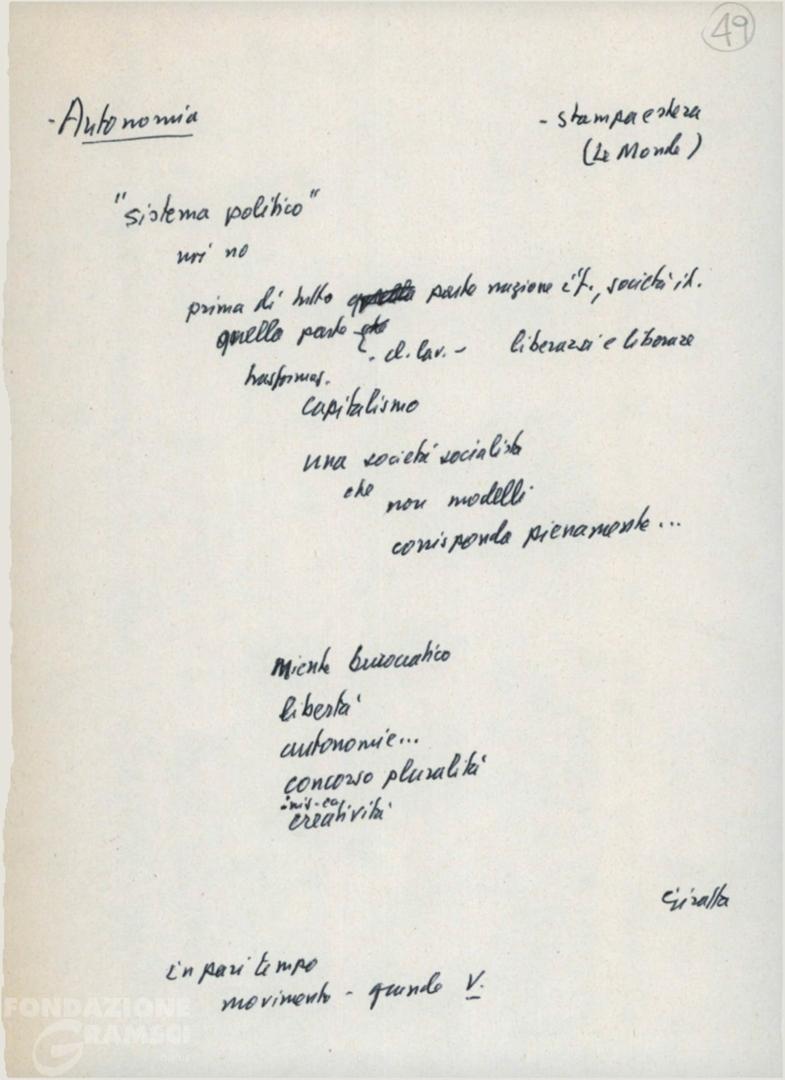 49
- Autonomia
- stampa estera
(Le Monde)
"sistema politico"
noi no
prima di tutto parte nazione it., società it.
quella parte che
- cl. lav. - liberarsi e liberare
trasformaz.
capitalismo
una società socialista
che
non modelli
corrisponda pienamente...
niente burocratico
libertà
autonomie...
concorso pluralità
creatività
in pari tempo
movimento - quando V.
FONDAZIONE
GRAMSCI